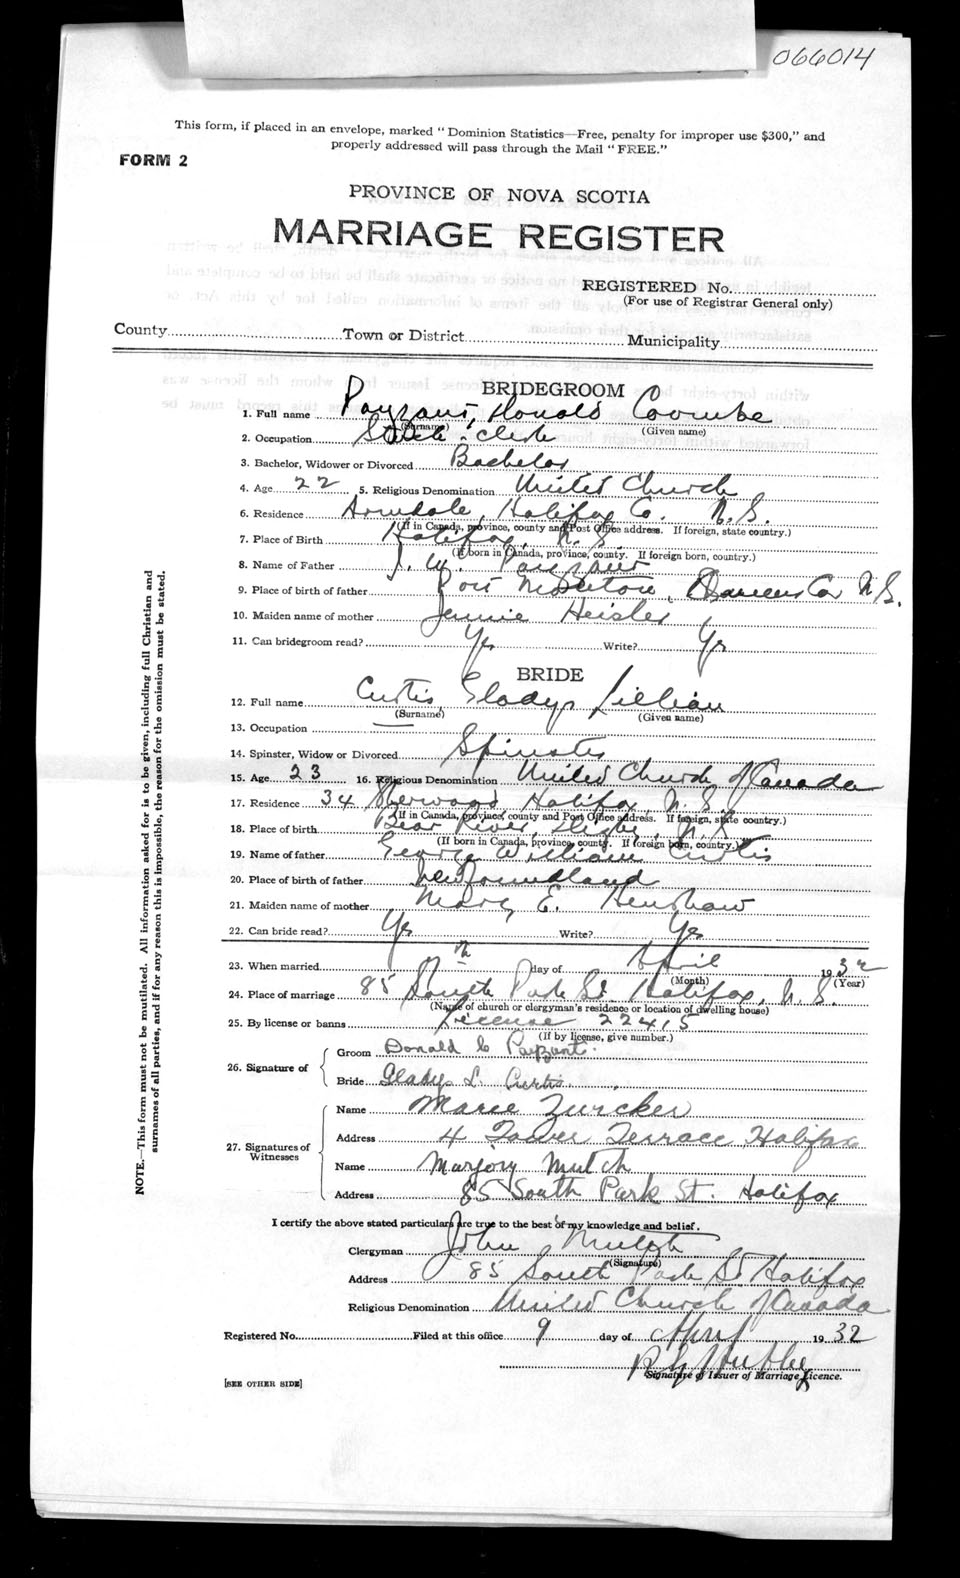 066014
This form, if placed in an envelope, marked "Dominion Statistics—Free, penalty for improper use $300," and
properly addressed will pass through the Mail "FREE."
FORM 2
PROVINCE OF NOVA SCOTIA
MARRIAGE REGISTER
REGISTERED No.
(For use of Registrar General only)
County Town or District Municipality
BRIDEGROOM
1. Full name Payzant, Donald Coombe
(Surname) (Given name)
2. Occupation clerk
3. Bachelor, Widower or Divorced Bachelor
4. Age 22 5. Religious Denomination United Church
6. Residence Armdale, Halifax Co. N.S.
(If in Canada, province, county and Post Office address. If foreign, state country.)
7. Place of Birth Halifax, N.S.
(If born in Canada, province, county. If foreign born, country.)
8. Name of Father J. W. Payzant
9. Place of birth of father Port Mouton, Queens Co N.S.
10. Maiden name of mother Jennie Heisler
11. Can bridegroom read? Yes Write? Yes
BRIDE
12. Full name Curtis Gladys Lillian
(Surname) (Given name)
13. Occupation
14. Spinster, Widow or Divorced Spinster
15. Age 23 16. Religious Denomination United Church of Canada
17. Residence 34 Sherwood Halifax, N.S.
(If in Canada, province, county and Post Office address. If foreign, state country.)
18. Place of birth Bear River, Digby, N.S.
(If born in Canada, province, county. If foreign born, country.)
19. Name of father George William Curtis
20. Place of birth of father Newfoundland
21. Maiden name of mother Mary E. Henshaw
22. Can bride read? Yes Write? Yes
23. When married th day of April 1932
(Month) (Year)
24. Place of marriage 85 South Park St. Halifax, N.S.
(Name of church or clergyman's residence or location of dwelling house)
25. By license or banns License 22415
(If by license, give number.)
26. Signature of
Groom Donald C Payzant.
Bride Gladys L. Curtis
27. Signatures of Witnesses
Name Marie Zurcker
Address 4 Tower Terrace, Halifax
Name Marjory Mutch
Address 85 South Park St. Halifax
I certify the above stated particulars are true to the best of my knowledge and belief.
Clergyman John Mutch
(Signature)
Address 85 South Park St Halifax
Religious Denomination United Church of Canada
Registered No. Filed at this office 9 day of April 1932
Signature of Issuer of Marriage Licence.
[SEE OTHER SIDE]
NOTE.—This form must not be mutilated. All information asked for is to be given, including full Christian and
surnames of all parties, and if for any reason this is impossible, the reason for the omission must be stated.